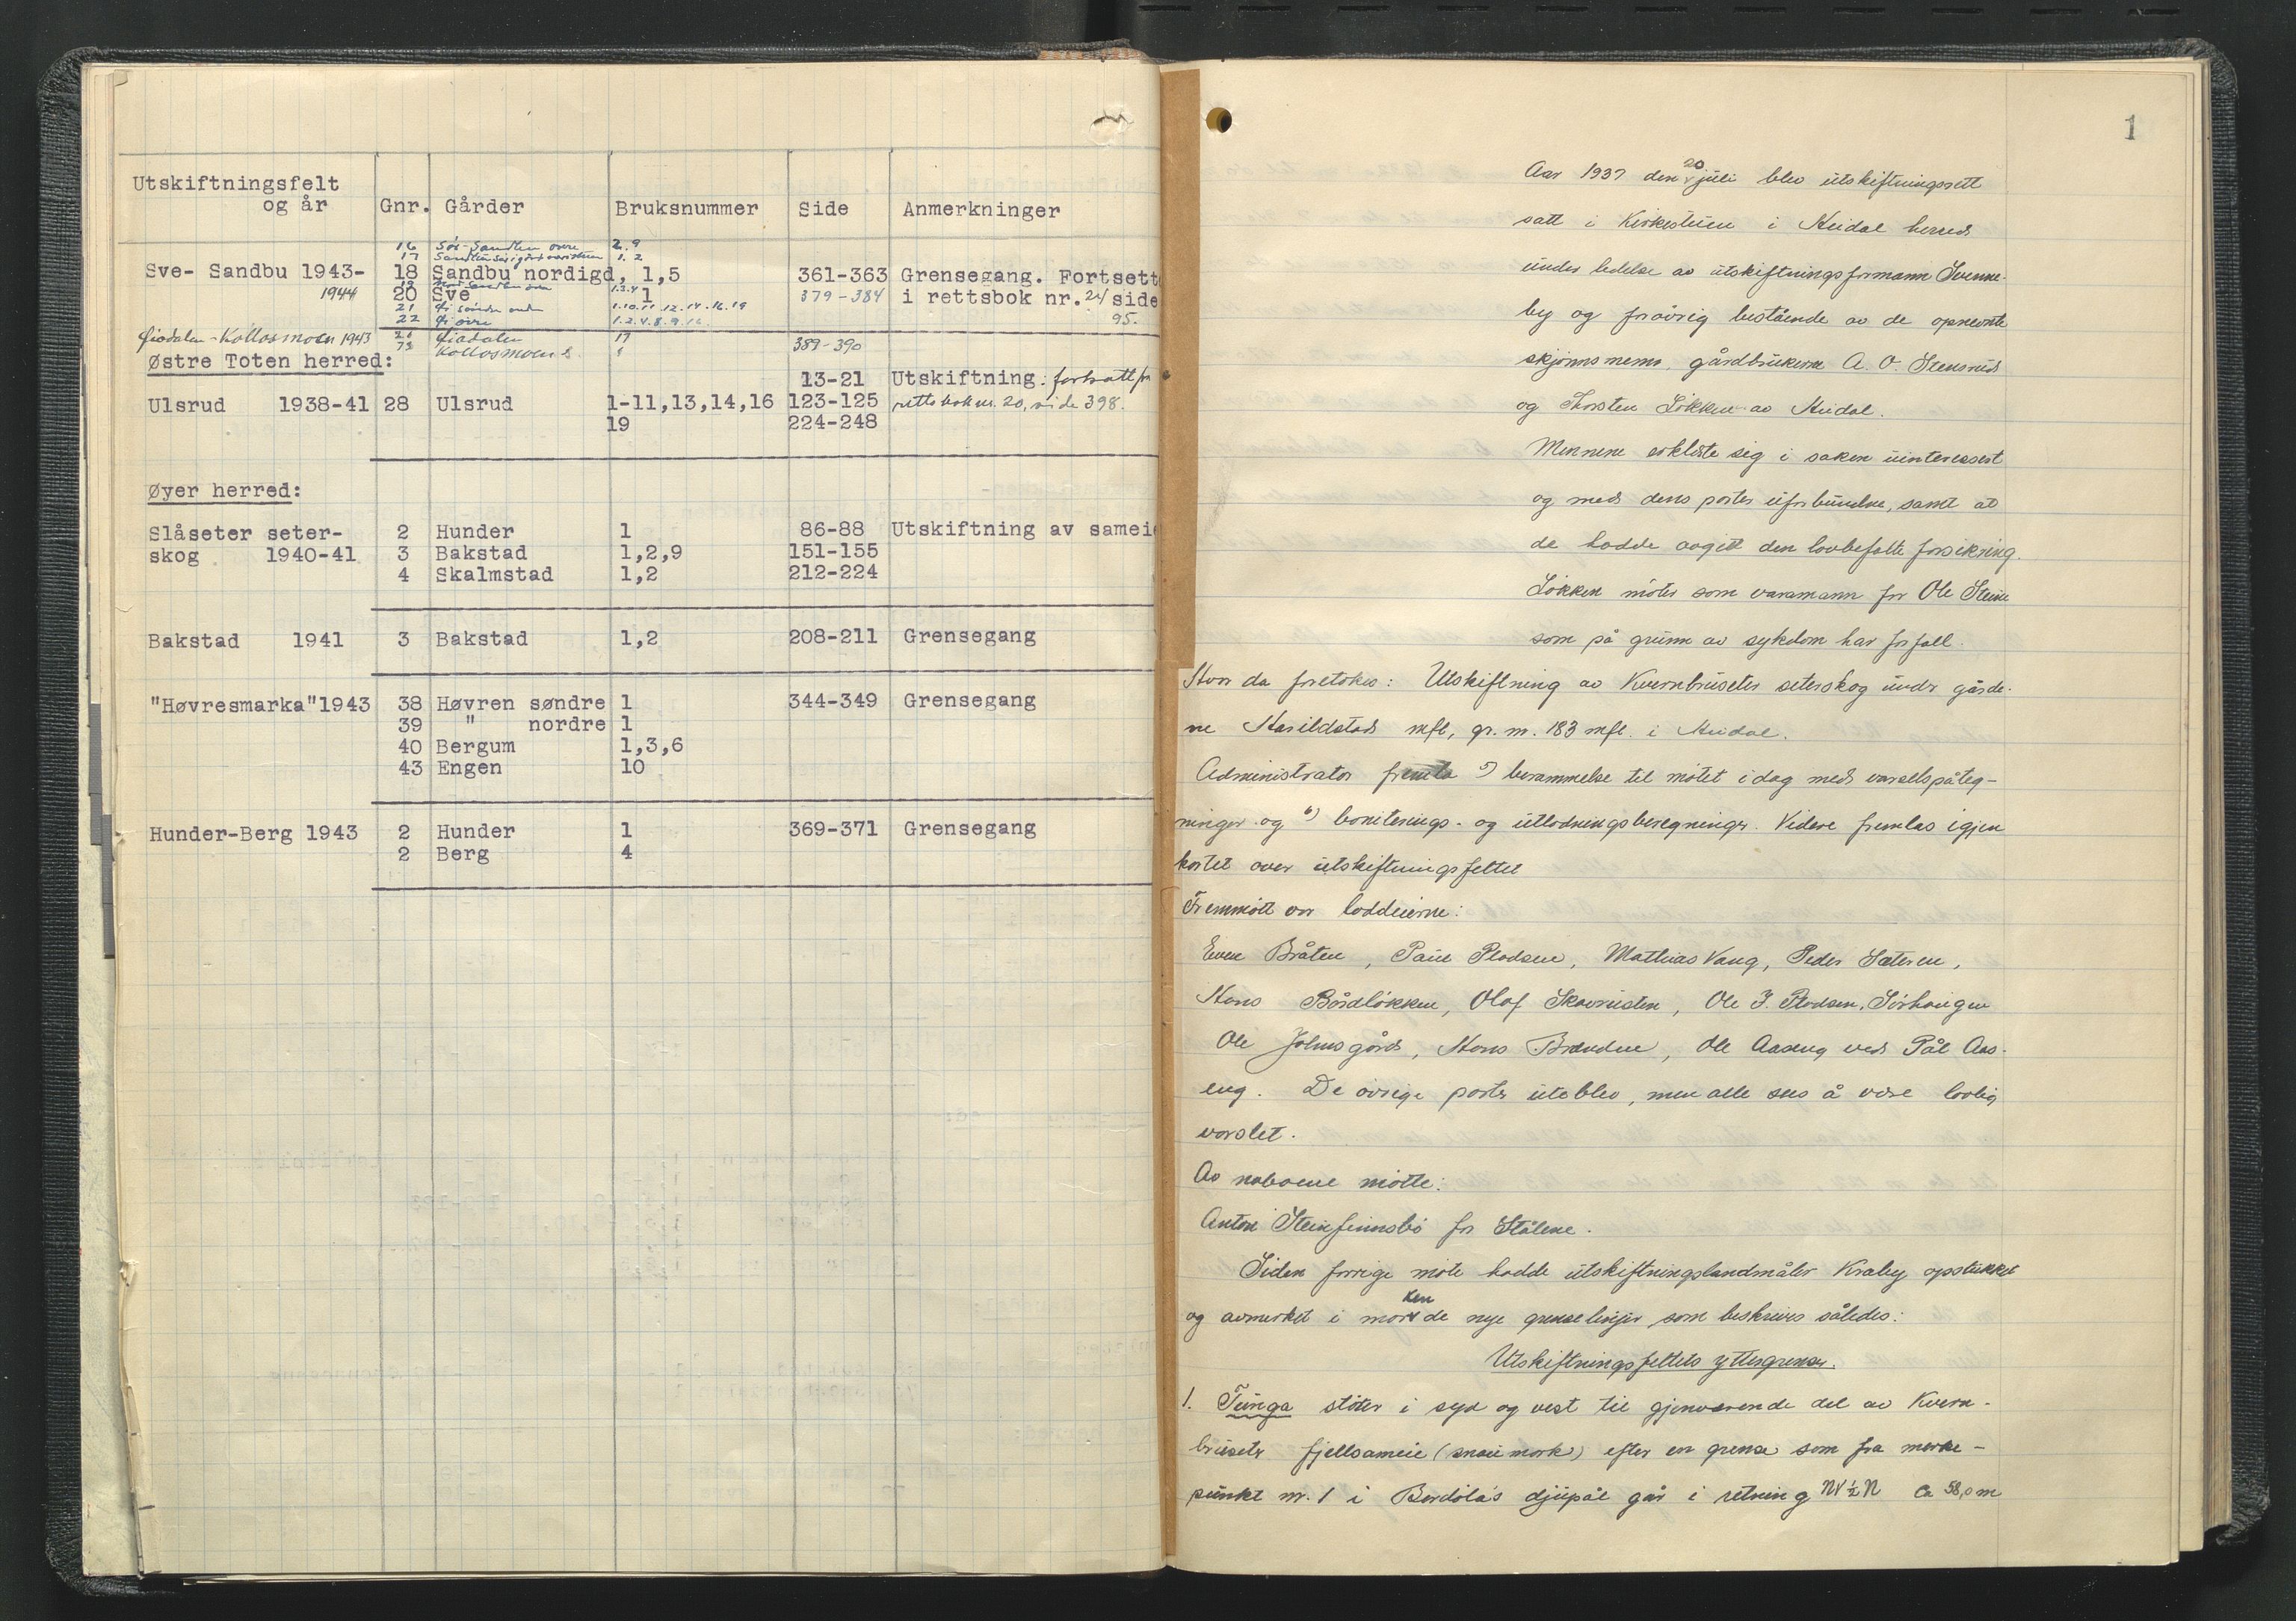 Utskiftningsfelt
og år Gnr. Gårder Bruksnummer Side Anmerkninger
16 Sør-Sandbu øvre 2.9
17 1.2
Sve- Sandbu 1943- 18 Sandbu nordigd, 1,5 361-363 Grensegang. Fortsett
19 1.2.4
1944 20 Sve 1 379-384 i rettsbok nr. 24/ side
21 1.10.11.12.14.16.19
22 øvre 1.2.4.8.9 95.
Kollosmoen 1943 17
73 Kollosmoen 389-390
Østre Toten herred:
13-21 Utskiftning: fortsatt fra
Ulsrud 1938-41 28 Ulsrud 1-11,13,14,16 123-125 rettsbok nr. 20, side 398.
19 224-248
Øyer herred:
Slåseter seter- 2 Hunder 1 86-88 Utskiftning av sameie
skog 1940-41 3 Bakstad 1,2,9 151-155
4 Skalmstad 1,2 212-224
Bakstad 1941 3 Bakstad 1,2 208-211 Grensegang
"Høvresmarka"1943 38 Høvren søndre 1 344-349 Grensegang
39 " nordre 1
40 Bergum 1,3,6
43 Engen 10
Hunder-Berg 1943 2 Hunder 1 369-371 Grensegang
2 Berg 4
1
Aar 1937 den 20 juli blev utskiftningsrett
satt i Kirkestuen i Heidal herred
under ledelse av utskiftningsformann Svenne-
by og forøvrig bestående av de opnevnte
skjønnsmenn, gårdbrukerne A. O. Stensrud
og Thorsten Løkken av Heidal.
Mennene erklærte sig i saken uinteressert
og med dens parter uforbundne, samt at
de hadde avgitt den lovbefalte forsikring.
Løkken møter som varamann for Ole Steine
som på grunn av sykdom har forfall.
Hvor da foretokes: Utskiftning av Kvernbruseter seterskog under gårde-
ne Harildstad mfl, gr. nr. 183 mfl. i Heidal.
Administrator fremla 5) berammelse til møtet idag med varselspåteg-
ninger og 6) boniterings- og utlodningsberegninger. Videre fremlas igjen
kartet over utskiftningsfeltet
Fremmøtt var loddeierne:
Even Bråten, Paul Pladsen, Mathias Vang, Peder Sæteren,
Hans Bårdløkken, Olaf Skovrusten, Ole J. Pladsen, Sørhaugen
Ole Johnsgård, Hans Brænden, Ole Aaseng ved Pål Aas-
eng. De øvrige parter uteblev, men alle sees å være lovlig
varslet.
Av naboene møtte:
Anton Steinfinnsbø for Stålene.
Siden forrige møte hadde utskiftningslandmåler Kraby opstukket
og avmerket i marken de nye grenselinjer som beskrives således:
Utskiftningsfeltets yttergrenser.
1. Tunga støter i syd og vest til gjenværende del av Kvern-
bruseter fjellsameie (snaumark) efter en grense som fra merke-
punkt nr. 1 i Bordøla's djupål går i retning NV½N ca 58,0 m